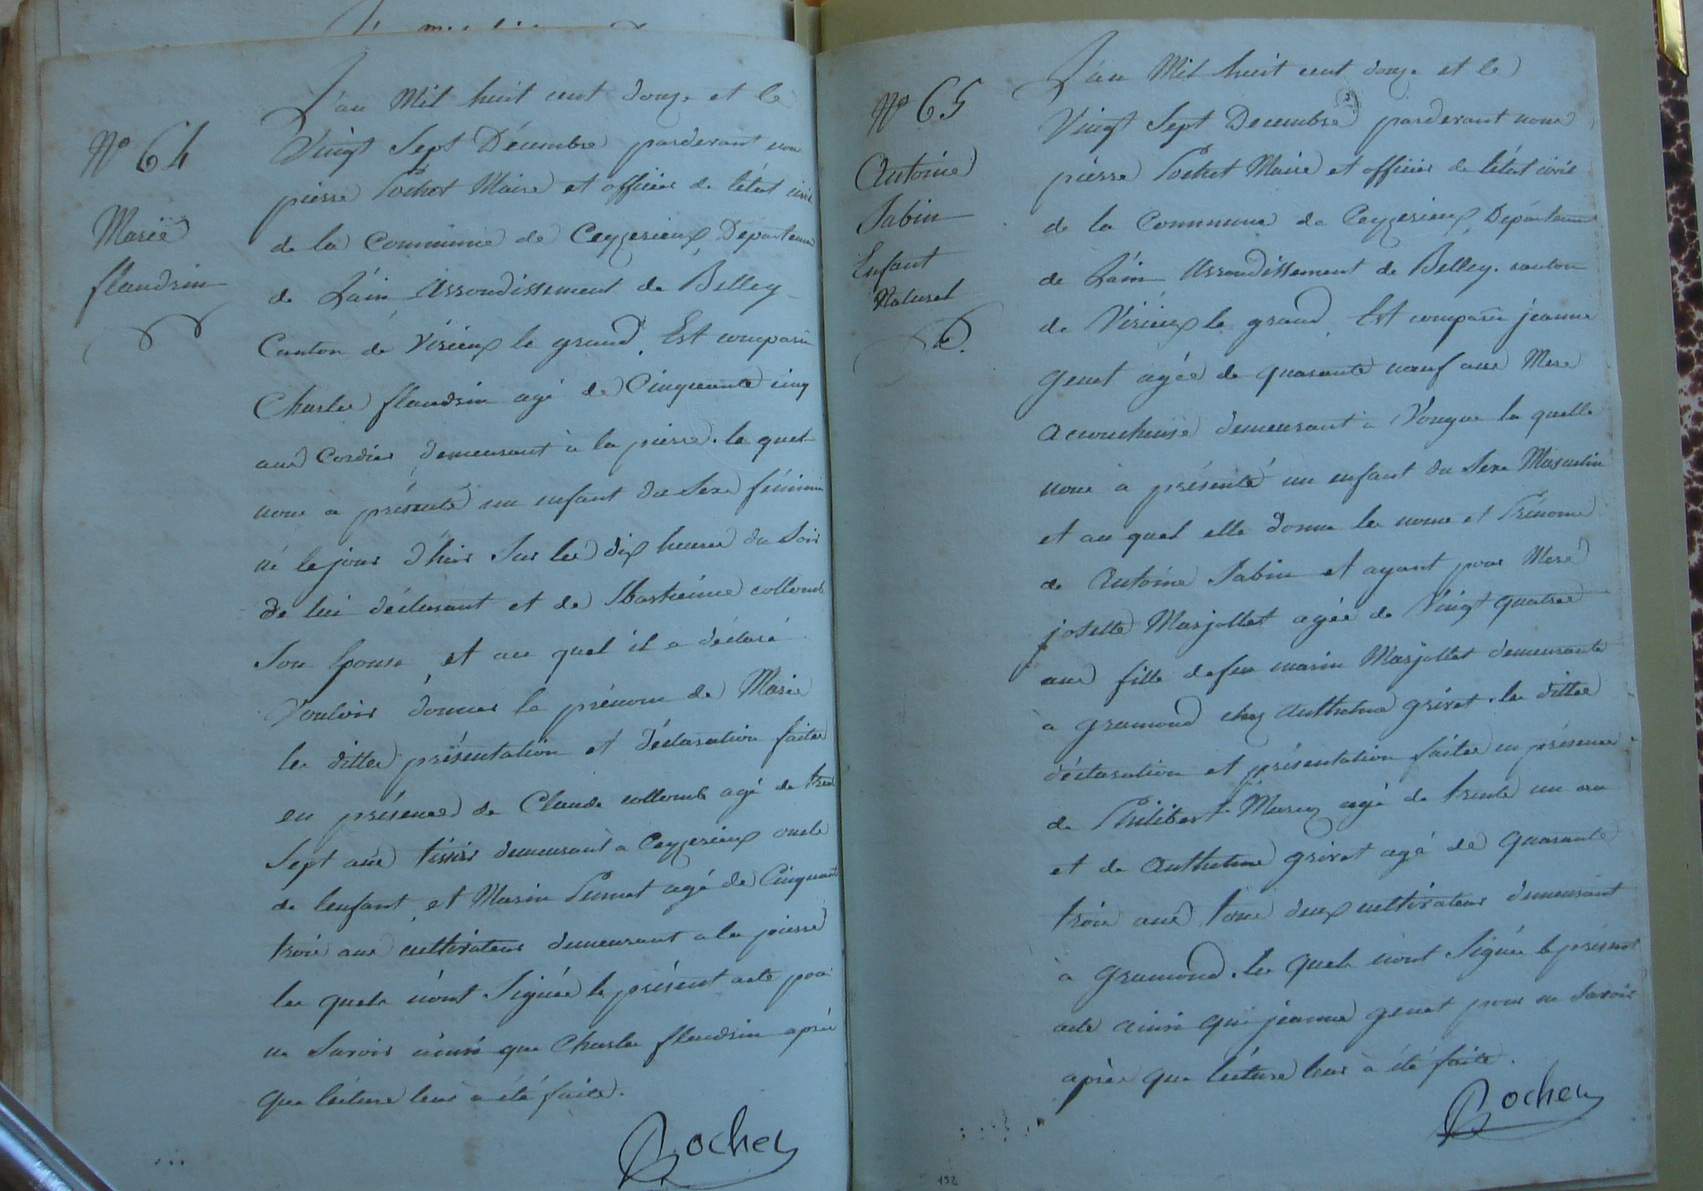 N° 64
Marie
flandrin
L'an Mil huit cent douze et le
Vingt Sept Décembre pardevant nous
pierre Pochet Maire et officier de l'état civil
de la Commune de Ceyzerieux Departement
de Lain Arrondissement de Belley
Canton de Virieux le grand. Est comparu
Charles flandrin agé de Cinquante cinq
ans Cordier demeurant à la pierre. le quel
nous a présenté un enfant du Sexe féminin
né le jour d'hier Sur les dix heures du Soir
de lui déclarant et de Sbastienne collomb
Son Epouse et au quel il a déclaré
Vouloir donner le prénom de Marie
les dittes présentation et déclaration faites
en présence de Claude collomb agé de trente
Sept ans tissier demeurant a Ceyzerieux oncle
de l'enfant et Marin agé de Cinquante
trois ans cultivateur demeurant a la pierre
les quels n'ont Signés le présent acte pour
ne Savoir ainsi que Charles flandrin après
que lecture leur a été faite.
Pochet
N° 65
Antoine
Sabin
Enfant
Naturel
L'an Mil huit cent douze et le
Vingt Sept Decembre pardevant nous
pierre Pochet Maire et officier de l'état civil
de la Commune de Ceyzerieux Departement
de Lain Arrondissement de Belley. canton
de Virieux le grand. Est comparu jeanne
genet agée de quarante neuf ans Mere
accoucheuse demeurant à Vongne la quelle
nous à présenté un enfant du Sexe Masculin
et au quel elle donne les noms et Prénoms
de Antoine Sabin et ayant pour Mere
josette Marjollet agée de Vingt quatre
ans fille de feu marin Marjollet demeurante
à gramond chez Anthelme grivet. les dittes
déclaration et présentation faites en présence
de Philibert agé de trente un an
et de Anthelme grivet agé de quarante
trois ans tous deux cultivateurs demeurant
à gramond. les quels n'ont Signés le présent
acte ainsi que jeanne genet pour ne Savoir
après que lecture leur à été faite.
Pochet
192